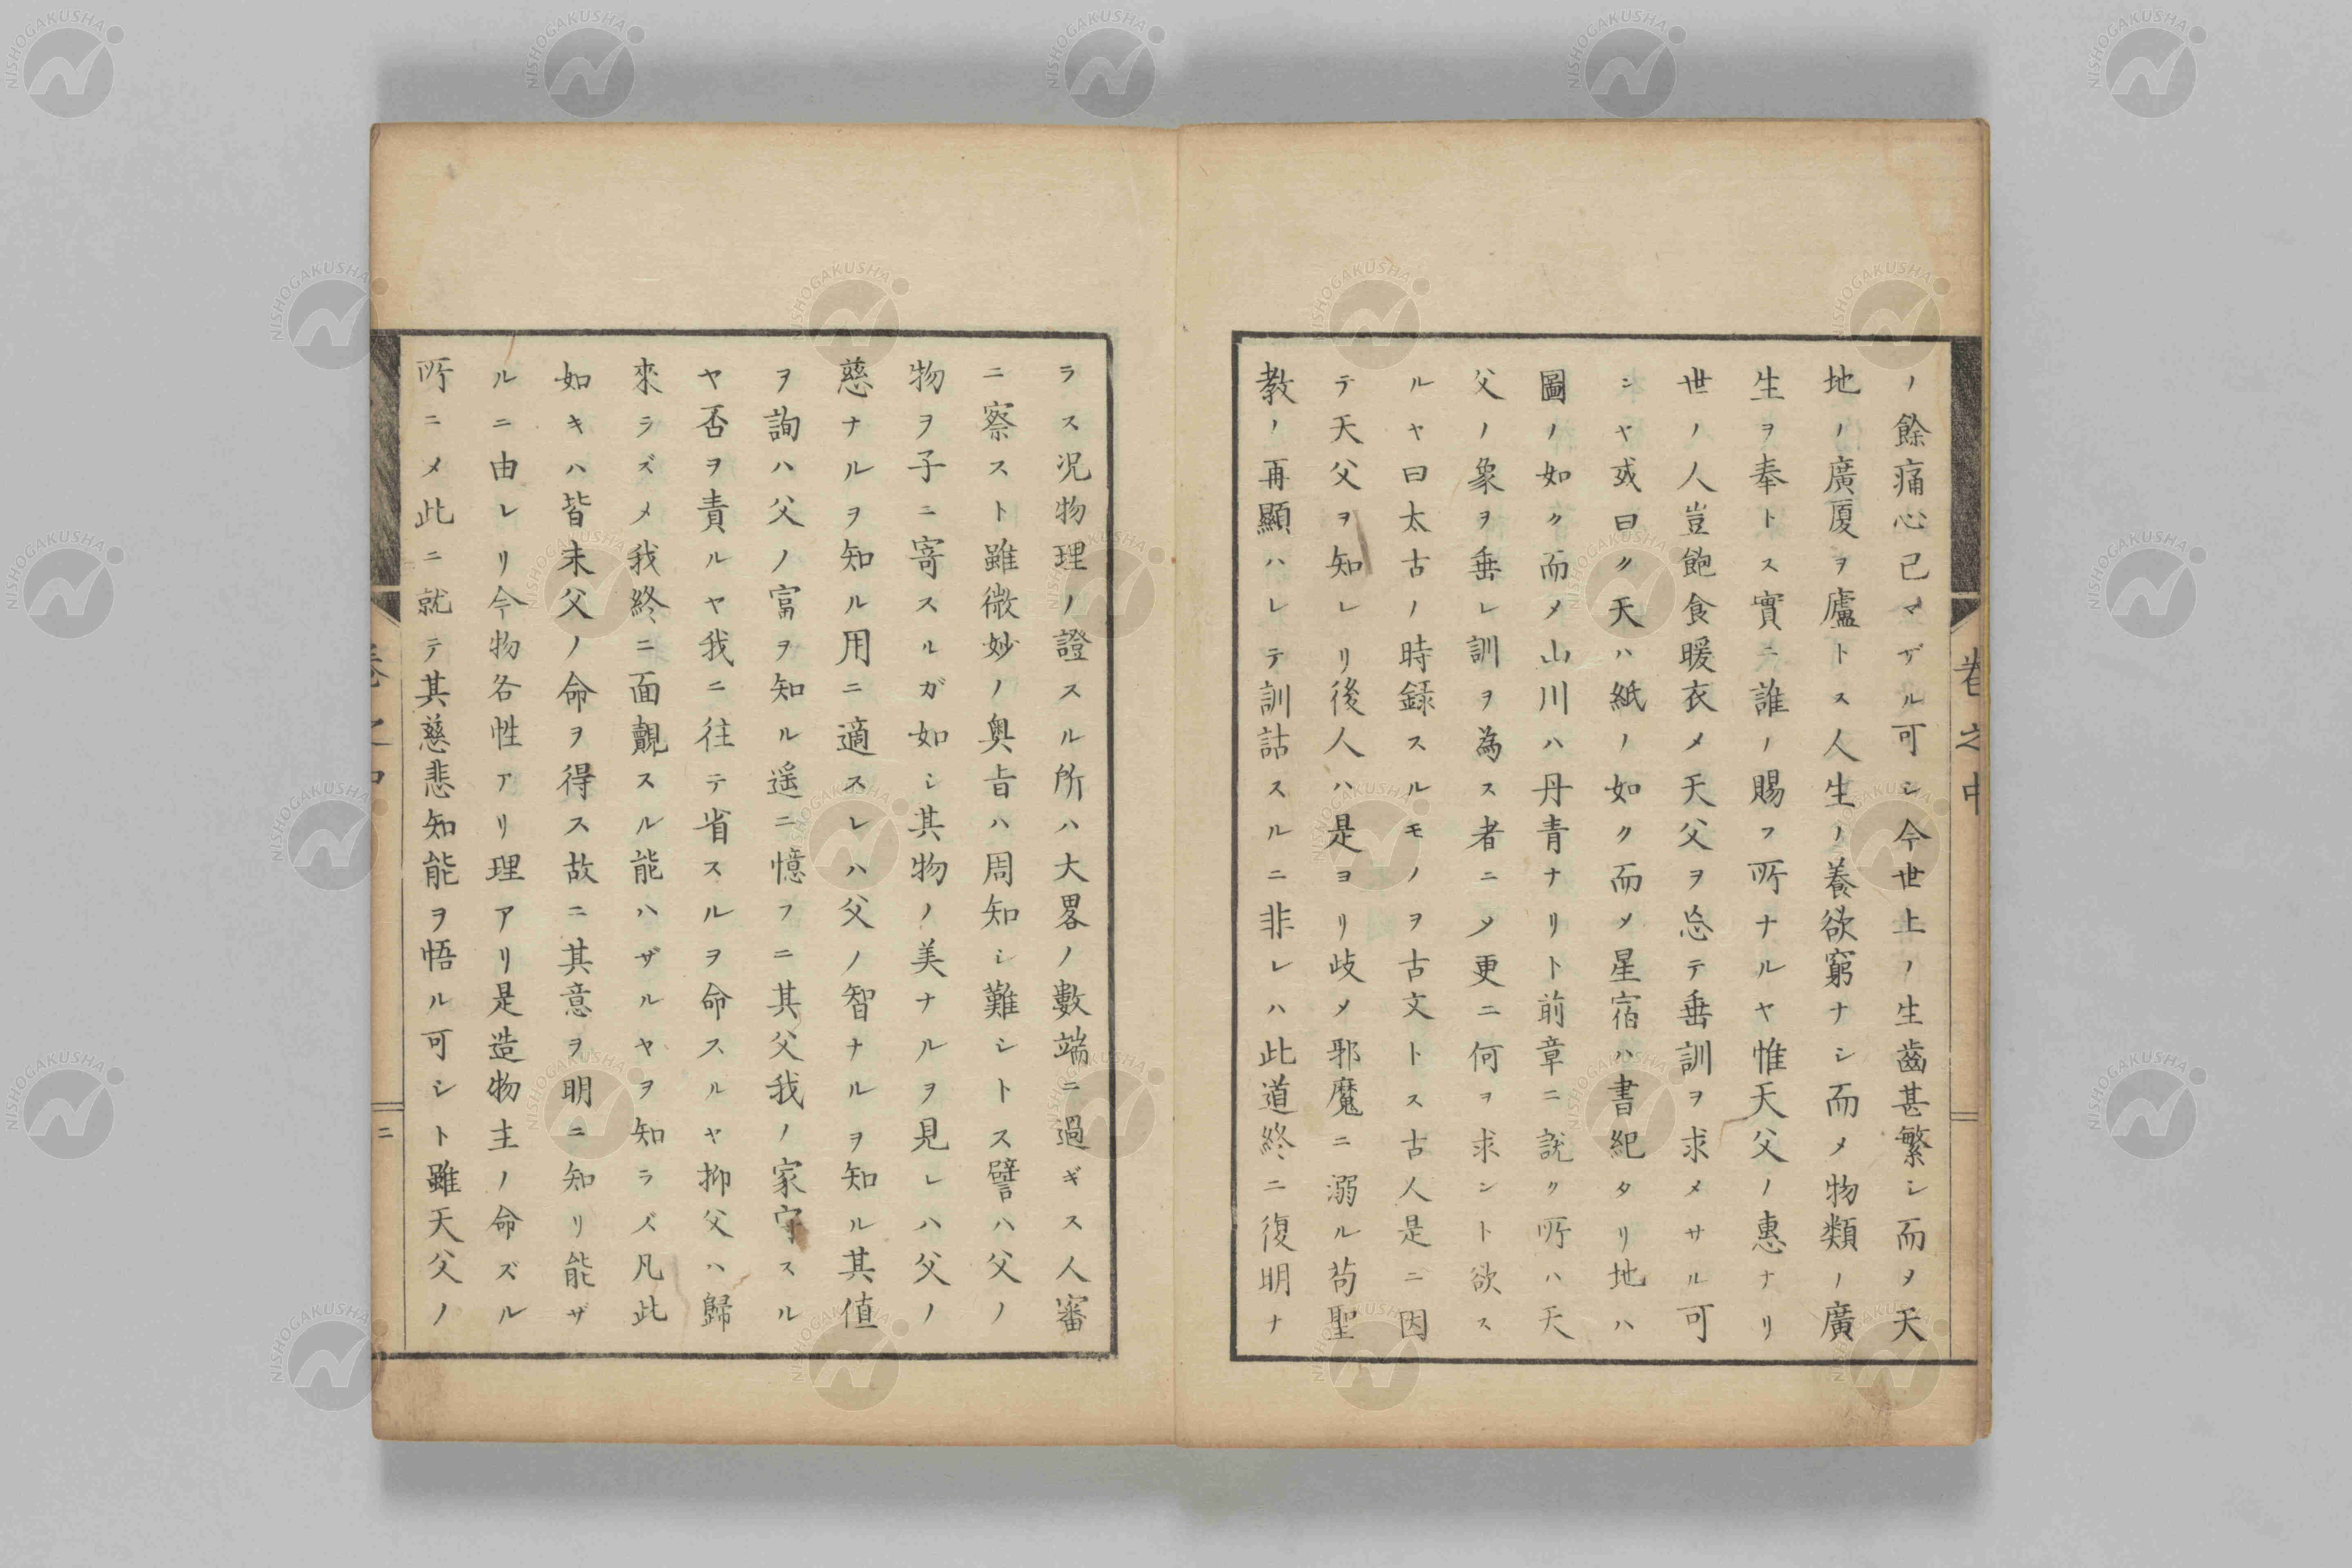 ノ餘痛心已マザル可シ今世上ノ生齒甚繁シ而メ天
地ノ廣厦ヲ廬トス人生ノ養欲窮ナシ而メ物類ノ廣
生ヲ奉トス實ニ誰ノ賜フ所ナルヤ惟天父ノ惠ナリ
世ノ人豈飽食暖衣メ天父ヲ忘テ垂訓ヲ求メサル可
シヤ或曰ク天ハ紙ノ如ク而メ星宿ハ書紀タリ地ハ
圖ノ如ク而メ山川ハ丹青ナリト前章ニ説ク所ハ天
父ノ象ヲ垂レ訓ヲ為ス者ニメ更ニ何ヲ求ント欲ス
ルヤ曰太古ノ時録スルモノヲ古文トス古人是ニ因
テ天父ヲ知レリ後人ハ是ヨリ歧メ邪魔ニ溺ル苟聖
教ノ再顯ハレテ訓詁スルニ非レハ此道終ニ復明ナ
卷之中
ラス况物理ノ證スル所ハ大畧ノ數端ニ過ギス人審
ニ察スト雖微妙ノ奥旨ハ周知シ難シトス譬ハ父ノ
物ヲ子ニ寄スルガ如シ其物ノ美ナルヲ見レハ父ノ
慈ナルヲ知ル用ニ適スレハ父ノ智ナルヲ知ル其值
ヲ詢ハ父ノ富ヲ知ル遥ニ憶フニ其父我ノ家守スル
ヤ否ヲ責ルヤ我ニ往テ省スルヲ命スルヤ抑父ハ歸
來ラズメ我終ニ面覿スル能ハザルヤヲ知ラズ凡此
如キハ皆未父ノ命ヲ得ス故ニ其意ヲ明ニ知リ能ザ
ルニ由レリ今物各性アリ理アリ是造物主ノ命ズル
所ニメ此ニ就テ其慈悲知能ヲ悟ル可シト雖天父ノ
卷之中
二
NISHOGAKUSHA